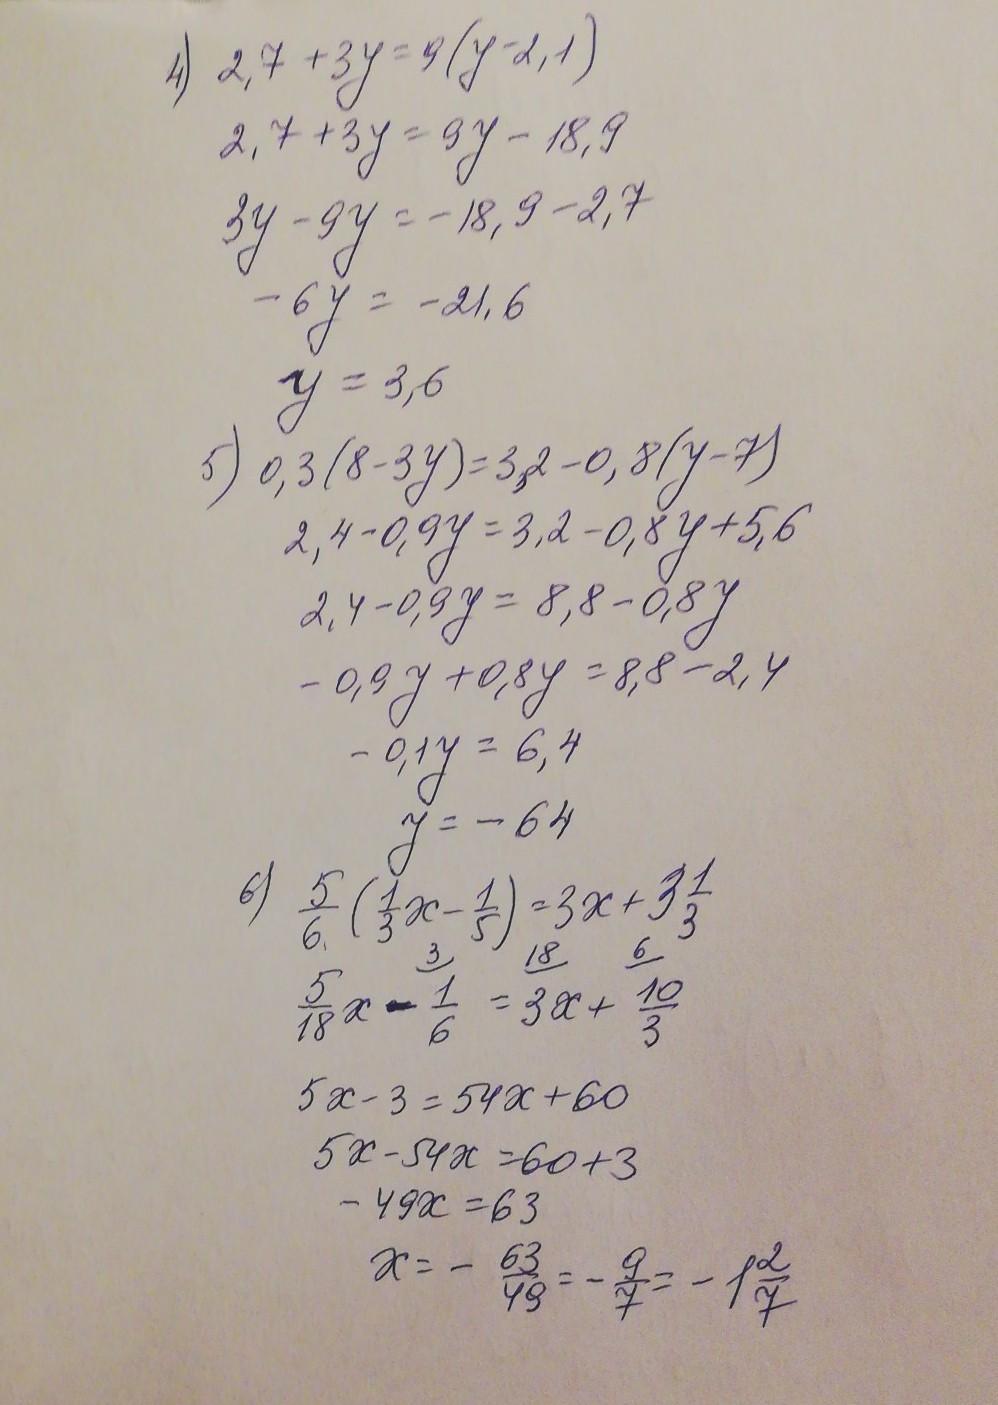 4) 2,7 + 3y = 9(y - 2,1)
2,7 + 3y = 9y - 18,9
3y - 9y = -18,9 - 2,7
-6y = -21,6
y = 3,6
5) 0,3(8 - 3y) = 3,2 - 0,8(y - 7)
2,4 - 0,9y = 3,2 - 0,8y + 5,6
2,4 - 0,9y = 8,8 - 0,8y
-0,9y + 0,8y = 8,8 - 2,4
-0,1y = 6,4
y = -64
6) 5/6 (1/3 x - 1/5) = 3x + 3 1/3
3 18 6
5/18 x - 1/6 = 3x + 10/3
5x - 3 = 54x + 60
5x - 54x = 60 + 3
-49x = 63
x = - 63/49 = - 9/7 = - 1 2/7